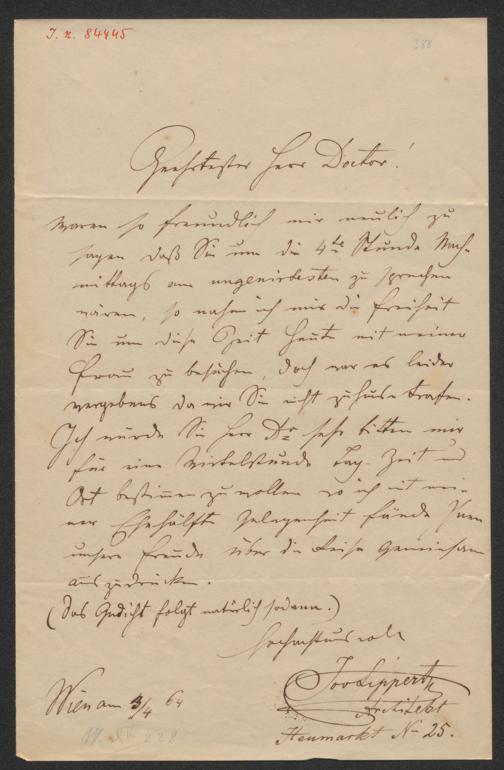 J. N. 84445
388
Geehrtester Herr Doctor!
Waren so freundlich mir neulich zu
sagen daß Sie um die 4te Stunde Nach-
mittags am ungenirtesten zu sprechen
wären, so nahm ich mir die Freiheit
Sie um diese Zeit heute mit meiner
Frau zu besuchen, doch war es leider
vergebens da wir Sie nicht zuhause trafen.
Ich würde Sie Herr Dr sehr bitten mir
für eine Viertelstunde Tag, Zeit und
Ort bestimmen zu wollen wo ich mit mei-
ner Ehehälfte Gelegenheit fände Ihnen
unsere Freude über die Reise gemeinsam
auszudrücken.
(Das Gedicht folgt natürlich sodann.)
Hochachtungsvoll
Jos Lippert
Wien am 3/4 64
Architekt
Heumarkt No 25.